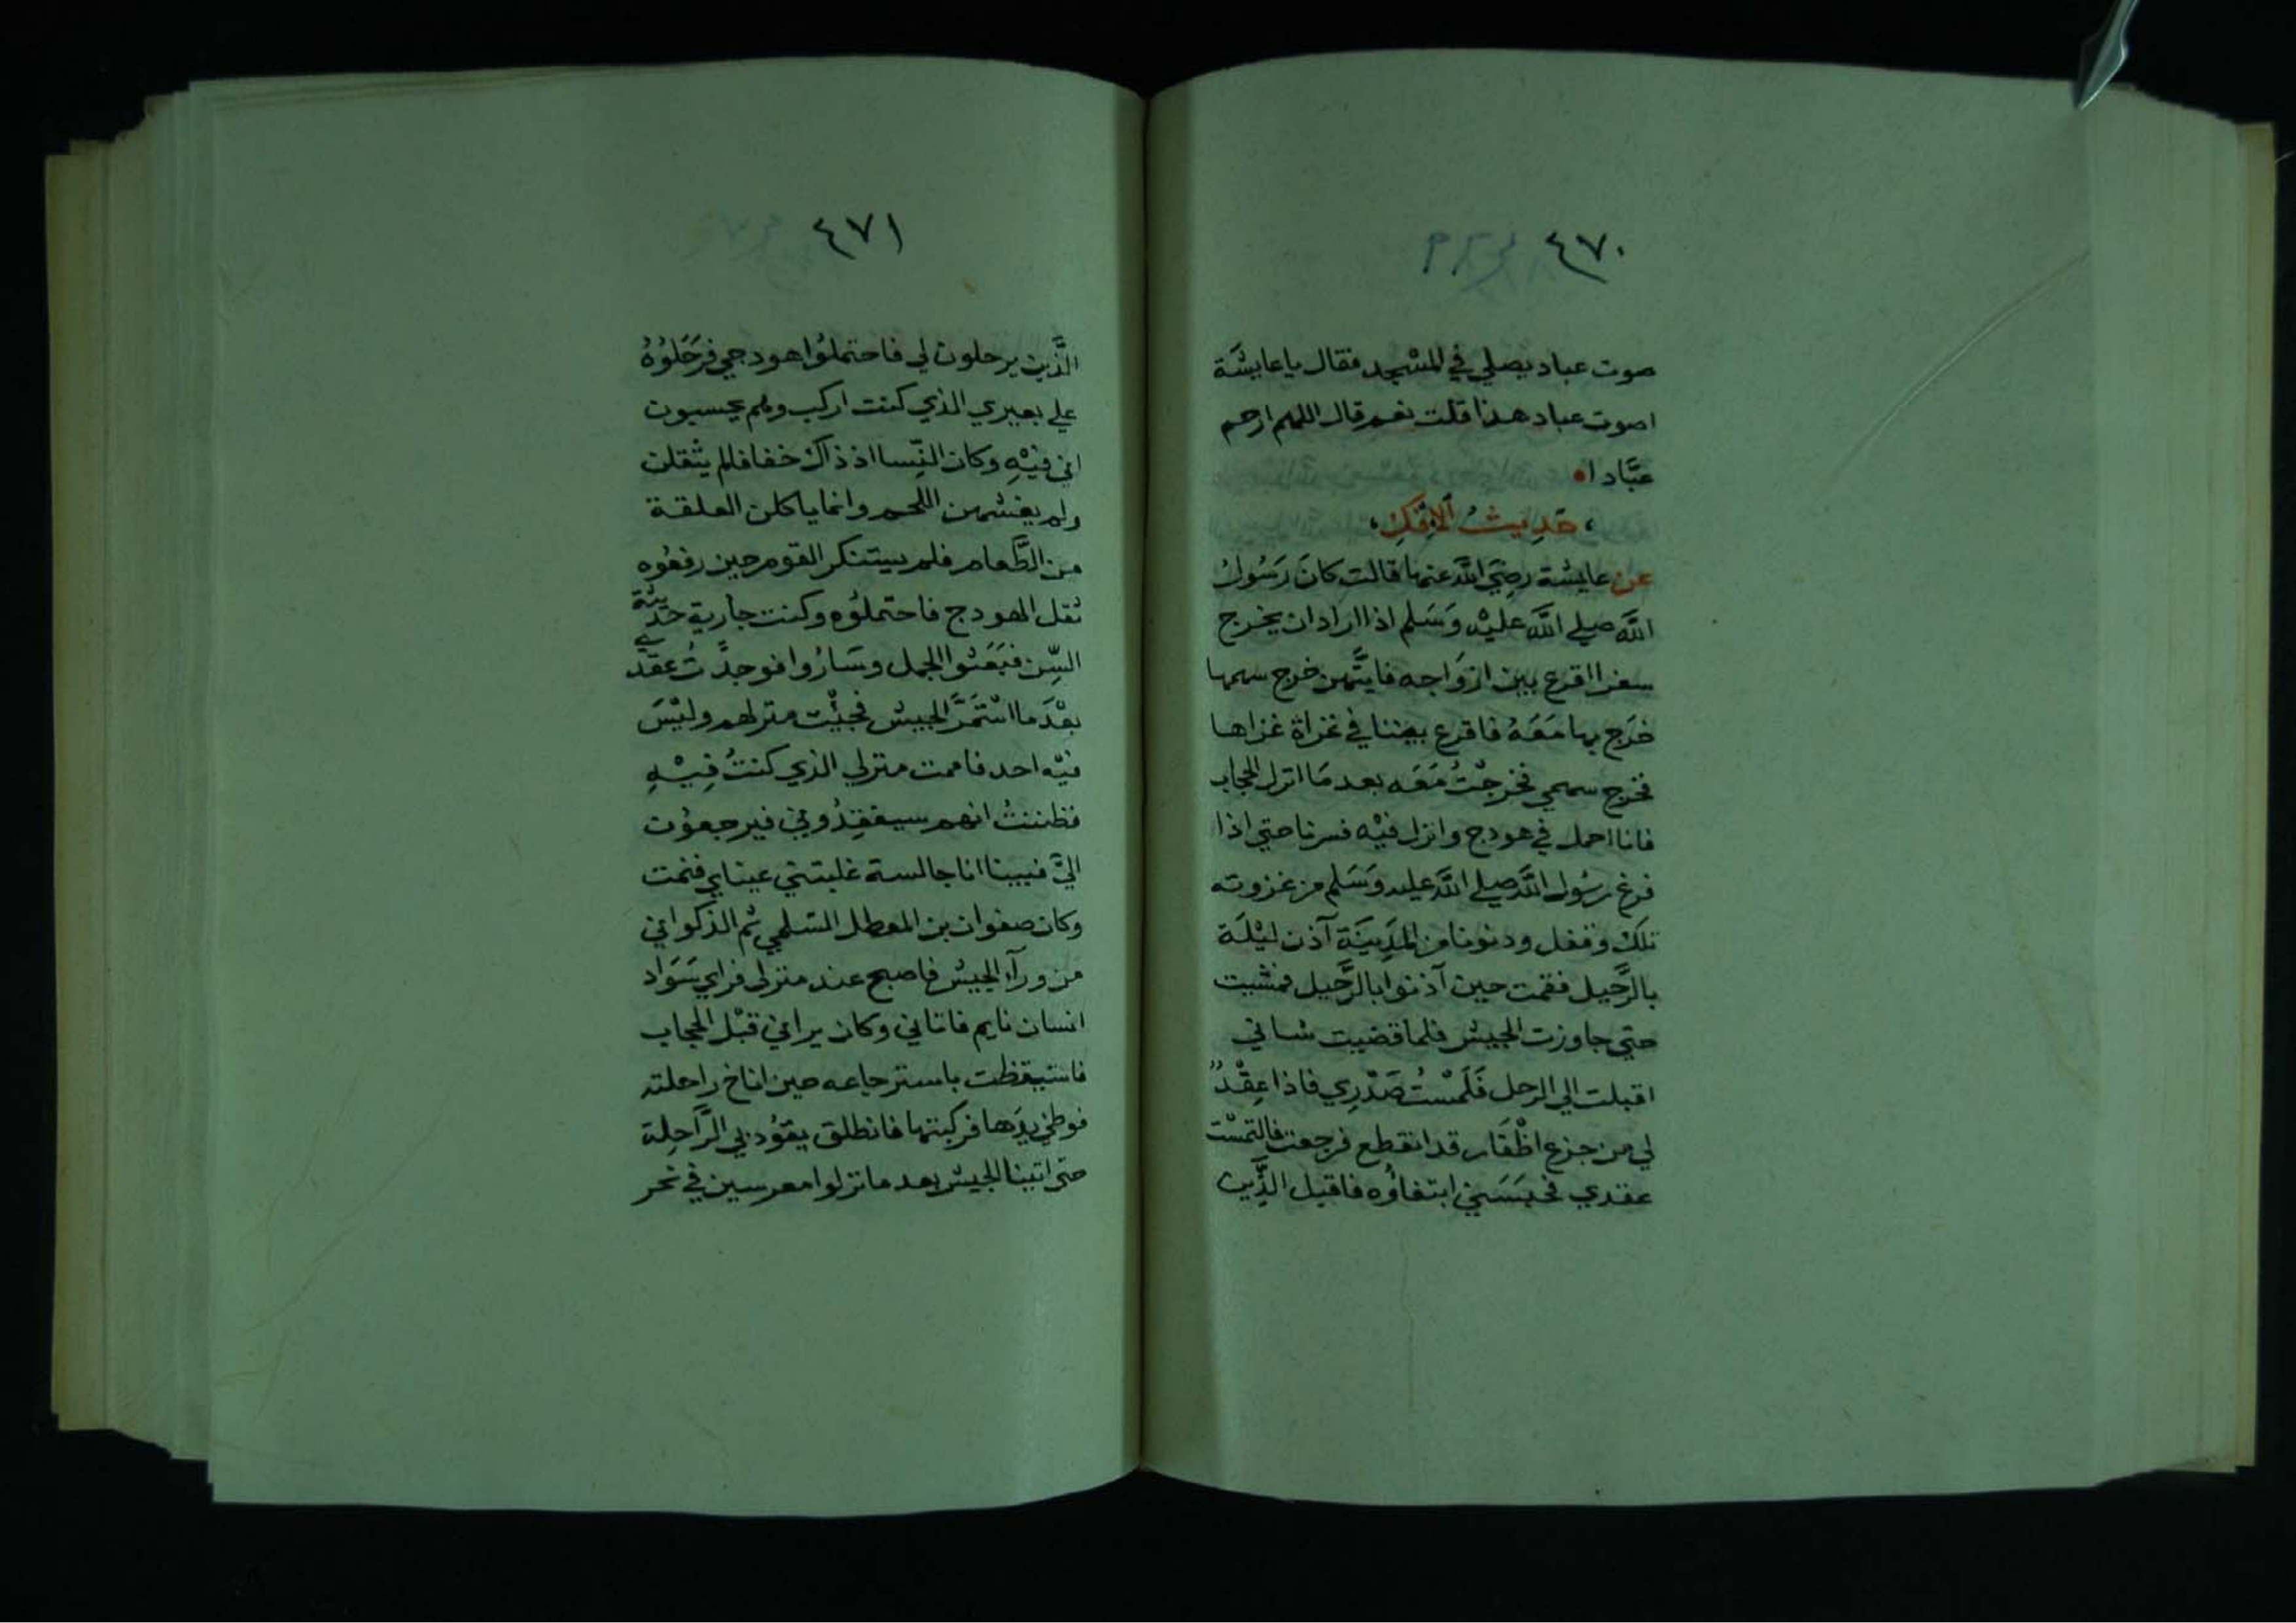 ٤٧٠
صوت عباد يصلي في المسْجد فقال يا عايشَة
اصوت عباد هذا قلت نعم قال اللهم ارحم
عبَّادا
حَدِيثُ الإِفْكِ
عن عايشة رضِيَ اللَّه عنها قالت كانَ رَسُولُ
اللَّه صلي اللَّه عليْه وَسَلم اذا اراد ان يخرج
سفرا اقرع بين ازوَاجه فايتُّهن خرج سهمها
خرَج بها مَعَهُ فاقرع بيننا في غزاة غزاها
فخرج سهمي فخرجْتُ مَعَه بعد مَا انزل الحجاب
فانا احمل في هودج وانزل فيْه فسرنا حتي اذا
فرغ رسُول اللَّه صلي اللَّه عليه وَسَلم من غزوته
تلك وقفل ودنونا من المَدِينَة آذن ليْلَة
بالرَّحيل فقمت حين آذنوا بالرَّحيل فمشيت
حتي جاوزت الجيش فلما قضيت شاني
اقبلت الي الرحل فَلَمسْتُ صَدْرِي فاذا عِقْدٌ
لي من جزع اظْفَار قد انقطع فرجعت فالتمسْت
عقدي فحبَسَني ابتغاؤُه فاقبل الذَّين
٤٧١
الذَّين يرحلون لي فاحتملُوا هودجي فرَحَلوُهُ
علي بعيري الذي كنت اركب وهم يحسبون
اني فيْهِ وكان النِّسا اذ ذاك خفافا لم يثقلن
ولم يغشهن اللحم وانما ياكلن العلقة
من الطَّعام فلم يستنكر القوم حين رفعُوه
ثقل الهودج فاحتملُوه وكنت جارية حديثة
السِّن فبَعَثوا الجمل وسَارُوا فوجدْتُ عقدي
بعْدَ ما اسْتَمَرَّ الجيش فجيْت منزلهم وليْسَ
فيْه احد فاممت منزلي الذي كنتُ فِيْهِ
فظننتُ انهم سيفقِدُوني فيرجعوُن
اليَّ فبينا انا جالسة غلبتني عيناي فنمت
وكان صفوان بن المعطل السّلمي ثم الذكواني
من ورآء الجيش فاصبح عند منزلي فراي سَوَاد
انسان نايم فاتاني وكان يراني قبْل الحجاب
فاستيقظت باسترجاعه حين اناخ راحلته
فوطي يدَها فركبتها فانطلق يقوُد بي الرَّاحِلة
حتي اتينا الجيش بعد ما نزلوا معرسين في نحر